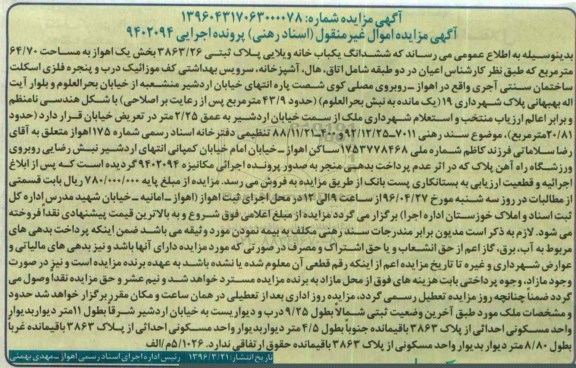 آگهی مزایده شماره: ۱۳۹۶۰۴۳۱۷۰۶۳۰۰۰۰۷۸
آگهی مزایده اموال غیر منقول (اسناد رهنی) پرونده اجرایی ۹۴۰۲۰۹۴
بدینوسیله به اطلاع عمومی می رساند که ششدانگ یکباب خانه ویلایی پلاک ثبتی ۳۸۶۳/۲۶ بخش یک اهواز به مساحت ۶۴/۷۰
مترمربع که طبق نظر کارشناس اعیان در دو طبقه شامل اتاق، هال، آشپزخانه، سرویس بهداشتی کف موزائیک درب و پنجره فلزی اسکلت
ساختمان سنتی آجری واقع در اهواز ـ روبروی مصلی کوی شصت پاره انتهای خیابان اردشیر منشعبه از خیابان بحرالعلوم و بلوار آیت
اله بهبهانی پلاک شهرداری ۱۹ (یک مانده به نبش بحرالعلوم) (حدود ۴۳/۹ مترمربع پس از رعایت بر اصلاحی) با شکل هندسی نامنظم
و برابر اعالم ارزیاب منتخب و استعلام شهرداری ملک از سمت خیابان اردشیر به عمق ۲/۲۵ متر در تعریض خیابان قرار دارد (حدود
۲۰/۸۱ مترمربع)، موضوع سند رهنی ۷۰۱۱ـ۹۲/۱۲/۲۵ و ۴۰۰ـ۸۸/۱۱/۲۱ تنظیمی دفترخانه اسناد رسمی شماره ۱۷۵ اهواز متعلق به آقای
رضا سلاماتی فرزند کاظم شماره ملی ۱۷۵۳۷۷۸۴۶۸ ساکن اهواز ـ خیابان امام خیابان کمپانی انتهای اردشیر نبش رضایی روبروی
ورزشگاه راه آهن پلاک که در اثر عدم پرداخت بدهی منجر به صدور پرونده اجرائی مکانیزه ۹۴۰۲۰۹۴ گردیده است که پس از ابلاغ
اجرائیه و قطعیت ارزیابی به بستانکاری پست بانک از طریق مزایده به فروش می رسد. مزایده از مبلغ پایه ۷۸۰/۰۰۰/۰۰۰ ریال بابت قسمتی
از مطالبات در روز سه شنبه مورخ ۹۶/۰۴/۲۷ از ساعت ۹ الی ۱۲ در محل اجرای ثبت اهواز (اهواز ـ امانیه ـ خیابان شهید مدرس اداره کل
ثبت اسناد و املاک خوزستان اداره اجرا) برگزار می گردد مزایده از مبلغ اعلامی فوق شروع و به بالاترین قیمت پیشنهادی نقدا فروخته
می شود. لازم به ذکر است مدیون برابر مندرجات سند رهنی مکلف به بیمه نمودن مورد وثیقه می باشد ضمن اینکه پرداخت بدهی های
مربوط به آب، برق، گاز اعم از حق انشعاب و یا حق اشتراک و مصرف در صورتی که مورد مزایده دارای آنها باشد و نیز بدهی های مالیاتی و
عوارض شهرداری و غیره تا تاریخ مزایده اعم از اینکه رقم قطعی آن معلوم شده یا نشده باشد به عهده برنده مزایده است و نیز در صورت
وجود مازاد، وجوه پرداختی بابت هزینه های فوق از محل مازاد به برنده مزایده مسترد خواهد شد و نیم عشر و حق مزایده نقدا وصول می
گردد ضمنا چنانچه روز مزایده تعطیل رسمی گردد، مزایده روز اداری بعد از تعطیلی در همان ساعت و مکان مقرر برگزار خواهد شد حدود
و مشخصات ملک مورد طبق آخرین وضعیت ثبتی شمالا بطول ۹/۲۵ درب و دیواریست به خیابان اردشیر شرقا بطول ۱۱ متر دیواربدیوار
واحد مسکونی احداثی از پلاک ۳۸۶۳ باقیمانده جنوبا بطول ۴/۵ متر دیواربدیوار واحد مسکونی احداثی از پلاک ۳۸۶۳ باقیمانده غربا
بطول ۸/۸۰ متر دیوار بدیوار واحد مسکونی از پلاک ۳۸۶۳ باقیمانده حقوق ارتفاقی ندارد. ۵/۱۰۲۶/م/الف
تاریخ انتشار: ۱۳۹۶/۳/۲۱
رئیس اداره اجرای اسناد رسمی اهواز ـ مهدی بهمئی